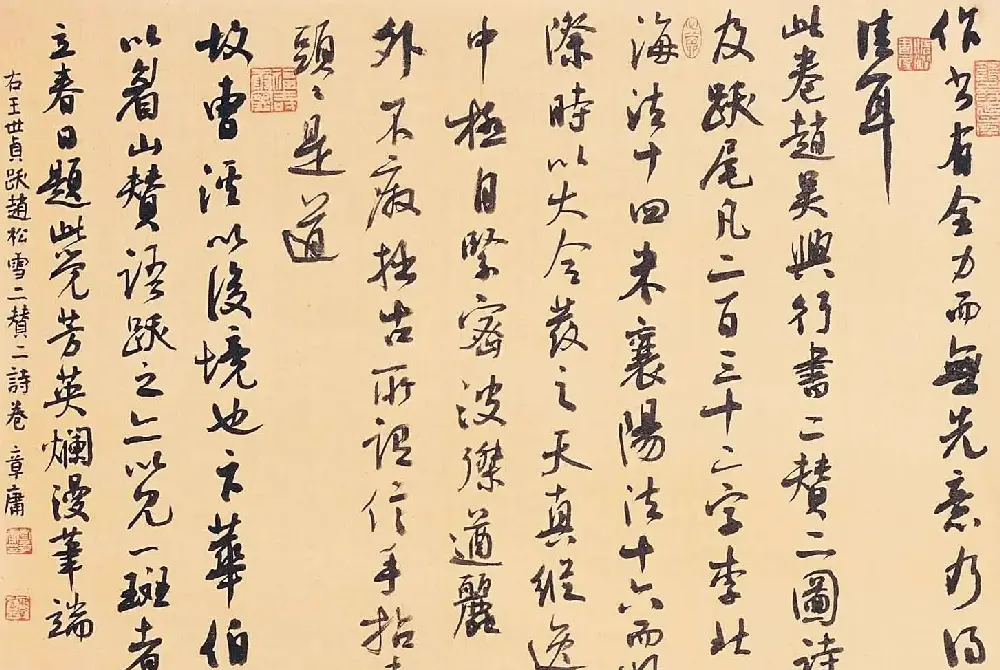 作書有全力而無先意乃得
佳耳
此卷趙吳興行書二贊二圖詩
及跋尾凡二百三十二字李北
海法十四米襄陽法十六而
際時以大令發之天真縱逸
中極自緊密波磔遒麗
外不廢拙古所謂信手拈
頭〻是道
故曹溪以後境也卞華伯
以看山贊語跋之亦以見一斑者
立春日題此覺芳英爛漫筆端
右王世貞跋趙松雪二贊二詩卷 章庸